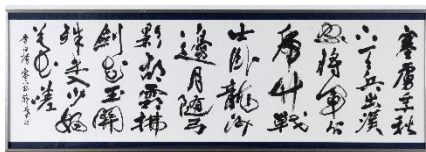 塞虜乘秋
下天兵出漢
家將軍分
虎竹戰
士臥龍沙
邊月隨弓
影胡霜拂
劍花玉關
殊未入少婦
莫長嗟
李白詩塞下曲